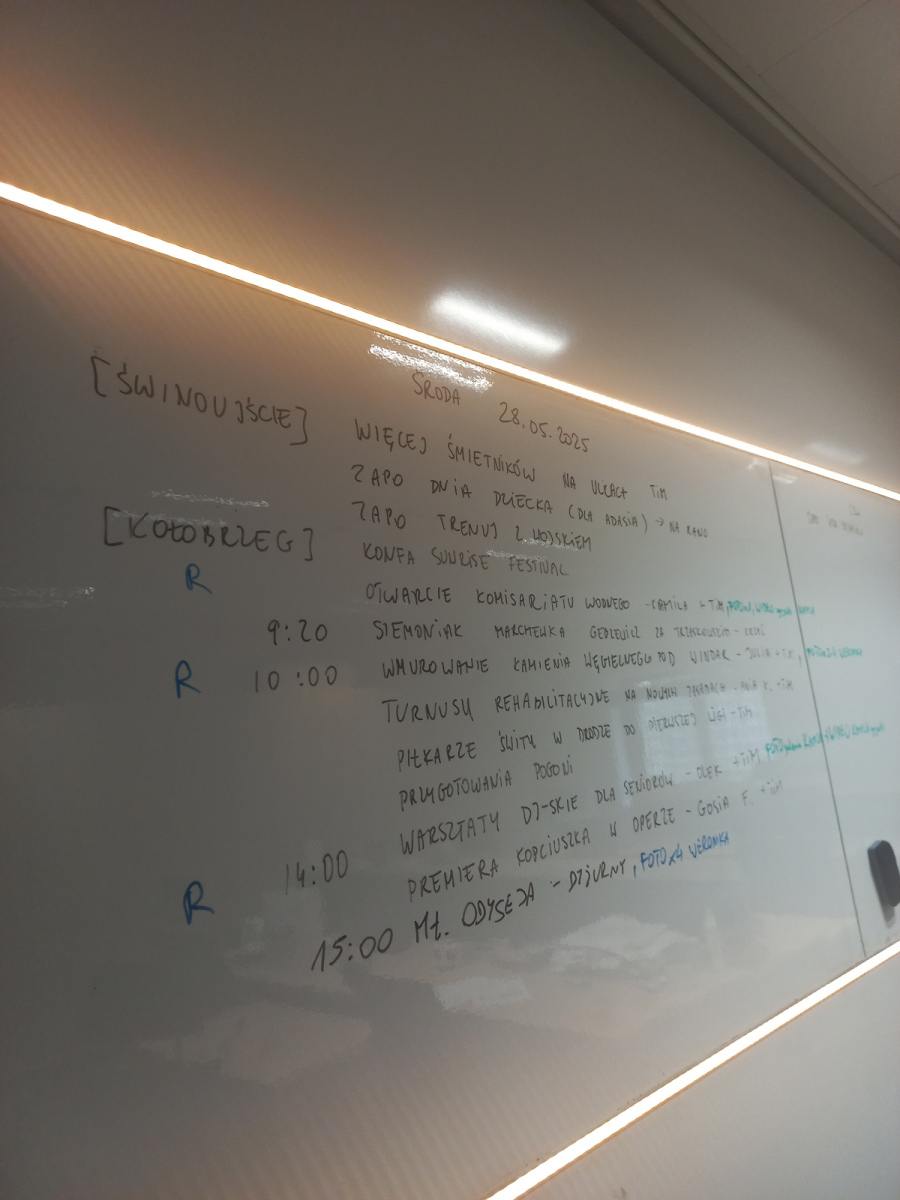 ŚRODA 28.05.2025
[ŚWINOUJŚCIE] WIĘCEJ ŚMIETNIKÓW NA ULICACH TIM
ZAPO DNIA DZIECKA (DLA ADASIA) → NA RANO
ZAPO TRENUJ Z WOJSKIEM
[KOŁOBRZEG] KONFA SUNRISE FESTIVAL
R OTWARCIE KOMISARIATU WODNEGO - KAMILA + TIM,
9:20 SIEMONIAK MARCHEWKA GEBLEWICZ ZA TRZASKOWSKIM -
R 10:00 WMUROWANIE KAMIENIA WĘGIELNEGO POD WINDAR - JULIA + TIM, FOTO x4 WERONIKA
TURNUSY REHABILITACYJNE NA NOWYCH ZASADACH - ANIA K. + TIM
PIŁKARZE ŚWITU W DRODZE DO PIERWSZEJ LIGI - TIM
PRZYGOTOWANIA POGONI
14:00 WARSZTATY DJ-SKIE DLA SENIORÓW - OLEK + TIM
R PREMIERA KOPCIUSZKA W OPERZE - GOSIA F. + TIM
15:00 MŁ. ODYSEJA - DYŻURNY, FOTO x4 WERONIKA